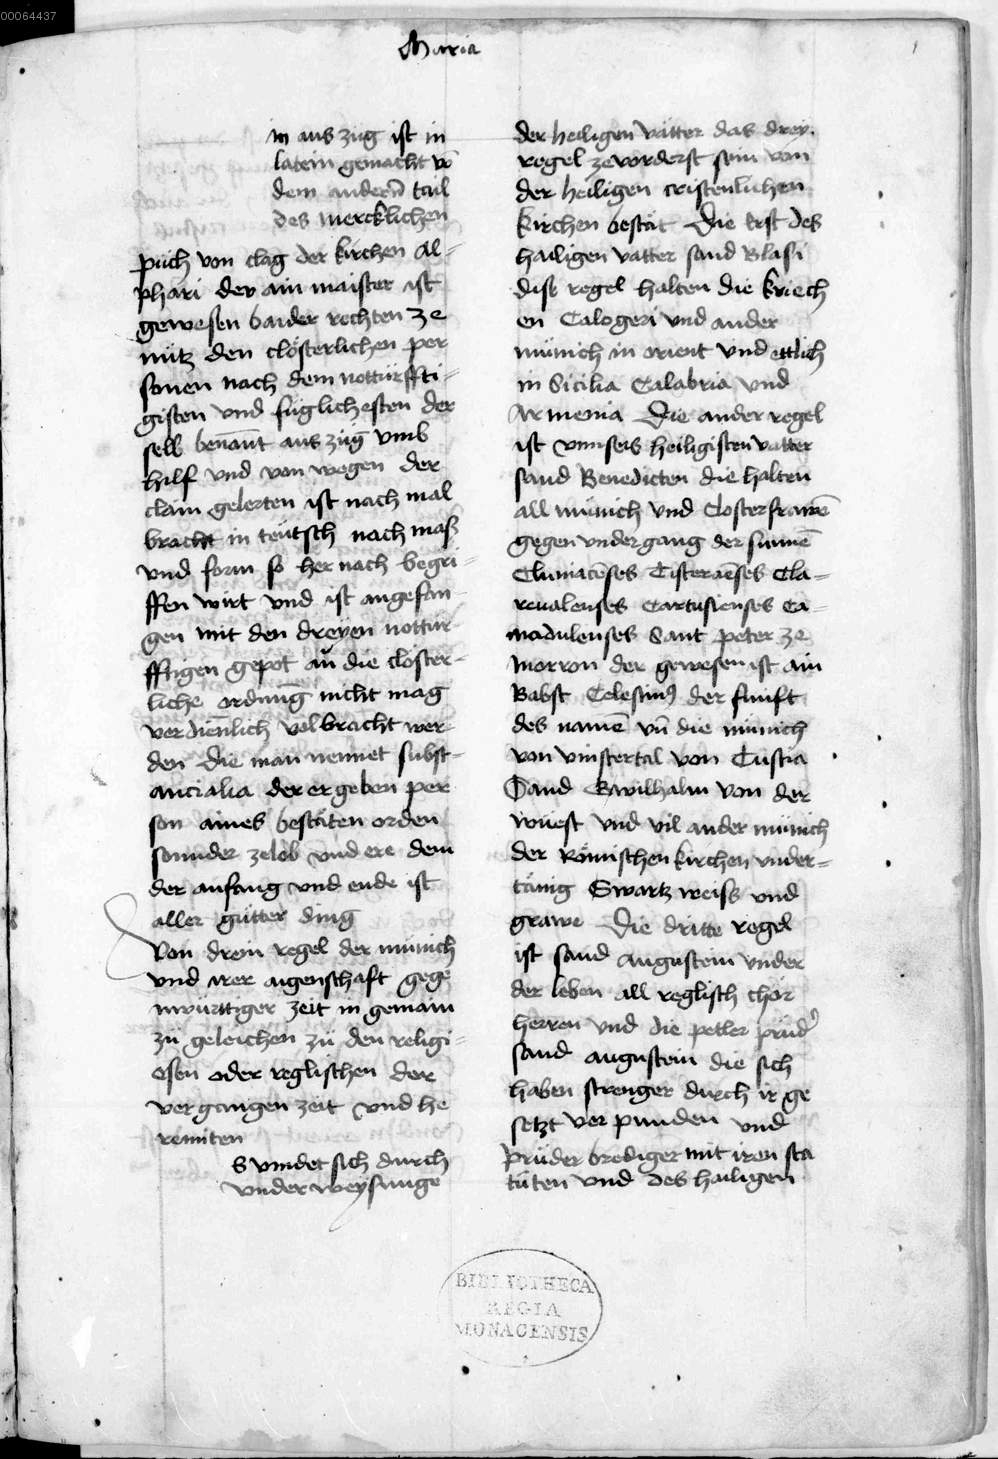 00064437
Maria
1
in aus züg ist in
latein gemacht võ
dem andern̄ tail
des mercklichen
püch von clag der kirchen Al-
phari der ain maister ist
gewesen baider rechten ze
nütz den clösterlichen per
sonen nach dem nottürffti-
gisten und füglichesten der
selb benan̄t aus züg vmb
hilf und von wegen der
clain gelerten ist nach mal
bracht in teütsch nach mass
und form so her nach begri-
ffen wirt und ist angefan-
gen mit den dreyen nottür-
fftigen gepot an̄ die closter-
liche ordnung nicht mag
verdienlich volbracht wer-
den Die man nennet subst-
ancialia der ergeben per
son aines bestäten orden
sounder zelob und ere dem
der anfang und ende ist
aller gütter ding
Von drein regel der münich
und irer aigenschaft gege
nwürttiger zeit in gemain
zü geleichen zü den religi-
osen oder reglischen der
vergangen zeit und he
remiten
S vindet sich durch
underweysunge
der heiligen vätter das drey
regel zevorderst sein von
der heiligen cristenlichen
kirchen bestät Die erst des
hailigen vatter sand Blasi
dise regel halten die kriech
en Calogeri und ander
münich in orient und ettlich
in Sicilia Calabria und
Armenia Die ander regel
ist unnsers heiligisten vatter
sand Benedicten die halten
all münich und Closterfrawē
gegen undergang der sunnē
Cluniacēses Cisterciēses Cla-
revalenses Cartusienses Ca-
madulenses Sant peter ze
Morron der gewesen ist ain
Babst Celestinꝰ der funft
des namē un̄ die münich
von vinstertal von Tuscia
Sand Gwilhalm von der
wüest und vil ander münich
der Römischen kirchen under-
tänig Swartz weiss und
grawe Die dritte regel
ist sand augustein under
der leben all reglisch chor
herren und die petler prüd
sand augustein die sich
haben strenger durch ir ge
setzt verpunden und
prüder brediger mit iren sta
tüten und des hailigen
BIBLIOTHECA
REGIA
MONACENSIS